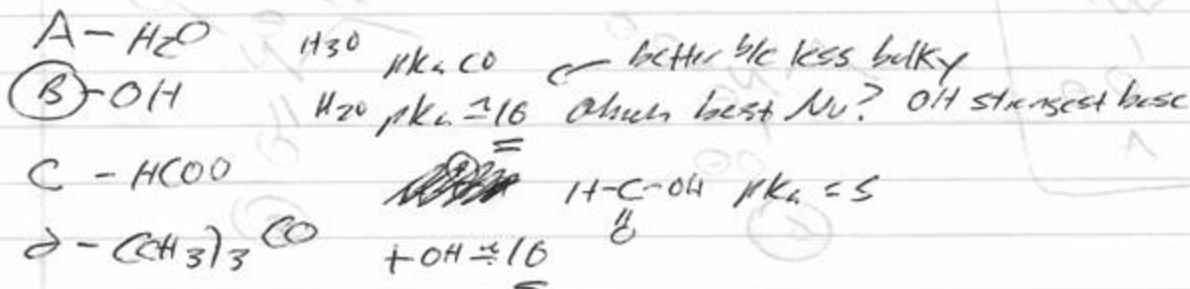 A - H2O H30 pka <0 ← better b/c less bulky
B - OH H20 pka ≈16 which best Nu? OH strongest base
C - HCOO H-C-OH pka = 5
O
d - (CH3)3 CO + OH ≈ 16